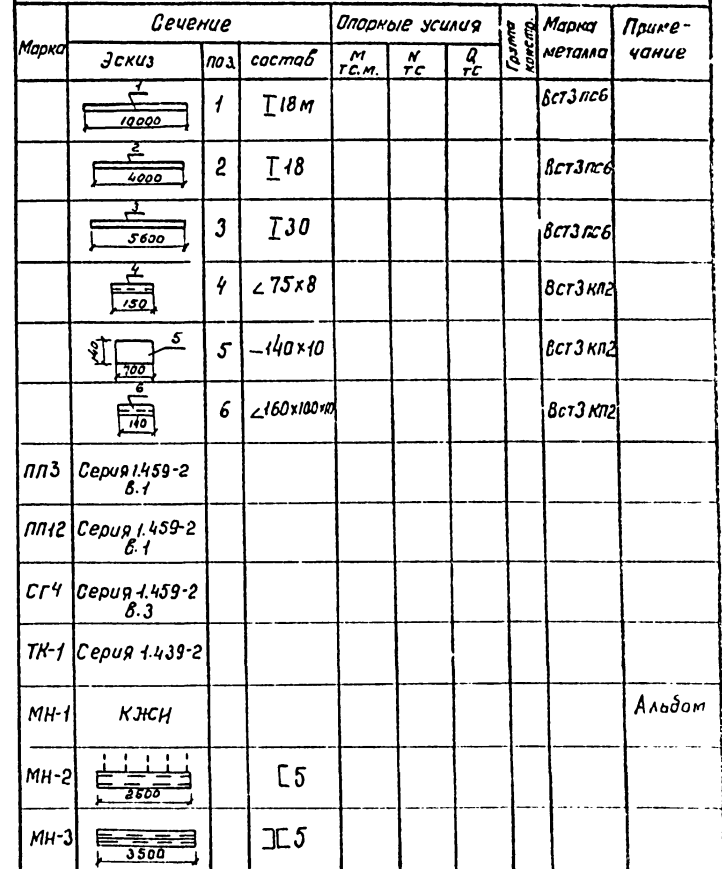 Марка Сечение Опорные усилия Группа констр. Марка металла Приме-чание
Эскиз поз. состав М тс.м. N тс Q тс
1 10000 1 I 18м Вст3пс6
2 4000 2 I 18 Вст3пс6
3 5600 3 I 30 Вст3пс6
4 150 4 ∠ 75×8 Вст3кп2
140 5 700 5 –140×10 Вст3кп2
6 140 6 ∠160×100×10 Вст3кп2
ПП3 Серия 1.459-2
в.1
ПП12 Серия 1.459-2
в.1
СГ4 Серия 1.459-2
в.3
ТК-1 Серия 1.439-2
МН-1 КЖИ Альбом
МН-2 2600 [5
МН-3 3500 ][5